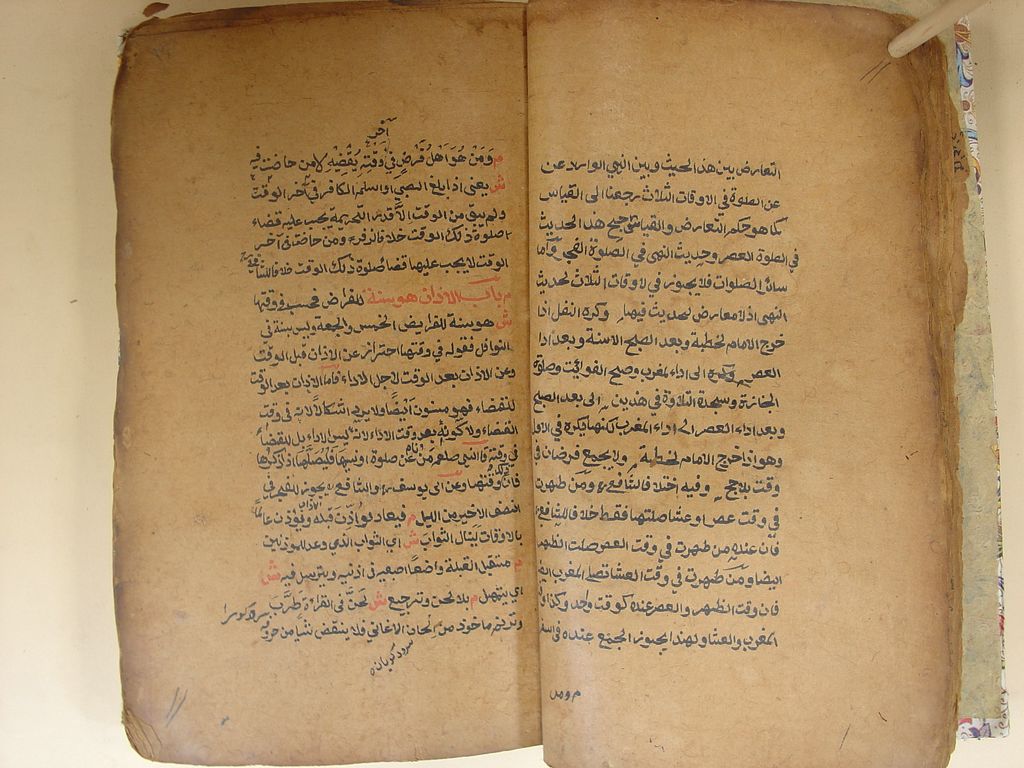 التعارض بين هذا الحديث وبين النهي الوارد عن
عن الصلوة في الاوقات الثلاث رجعنا الى القياس
كما هو حكم التعارض والقياس ترجيح هذا الحديث
في الصلوة العصر وحديث النهى في الصلوة الفجر واما
سائر الصلوات فلا يجوز في لاوقات الثلاث لحديث
النهى اذ لا معارض لحديث فيها وكره النفل اذا
خرج الامام لخطبة وبعد الصبح الا سنة وبعد ادا
العصر وكره الى اداء المغرب وصح الفوائت وصلوة
الجنازة وسجدة التلاوة في هذين الى بعد الصبح
وبعد اداء العصر الى اداء المغرب لكنها يكره في الاول
وهو اذا خرج الامام لخطبة ولا يجمع فرضان في
وقت بلا حج وفيه اختلاف الشافعي ومن طهرت
في وقت عصر او عشا صلتها فقط خلافا للشافعي
فان عنده من طهرت في وقت العصر صلت الظهر
ايضا ومن طهرت في وقت العشا تصل المغرب ايضا
فان وقت الظهر والعصر عنده كوقت واحد وكذا وقت
المغرب والعشا ولهذا يجوز الجمع عنده في السفر
م ومن
آخر
م ومن هو اهل فرض في وقته يقضه لا من حاضت فيه
ش يعنى اذا بلغ الصبي او اسلم الكافر في آخر الوقت
ولم يبق من الوقت الا قدر التحريمة يجب عليه قضاء
صلوة ذلك الوقت خلافا لزفر ومن حاضت في آخر
الوقت لا يجب عليها قضا صلوة ذلك الوقت خلافا للشافعي
م باب الاذان هو سنة للفرائض فحسب في وقتها
ش هو سنة للفرايض الخمس والجمعة وليس بسنة في
النوافل فقوله في وقتها احتراز عن الاذان قبل الوقت
وعن الاذان بعد الوقت لاجل الاداء فاما الاذان بعد الوقت
للقضاء فهو مسنون ايضا ولا يرد اشكالا لانه في وقت
القضاء ولا كونه بعد وقت الاداء لانه ليس الاداء بل للقضاء
في وقته قال النبي صلعم من نام عن صلوة او نسيها فليصلها اذا ذكرها
فان ذلك وقتها وعن ابي يوسف والشافعي يجوز للفجر في
النصف الاخير من الليل م فيعاد لو اذن قبله ويؤذن عالما
بالاوقات ينال الثواب ش اي الثواب الذي وعد للمؤذنين
م مستقبل القبلة واضعا اصبعيه في اذنيه ويترسل فيه ش
اي يتمهل م بلا لحن وترجيع ش لحن في القراءة طرب
وترنم ماخوذ من الحان الاغاني فلا ينقض شيا من حروفه